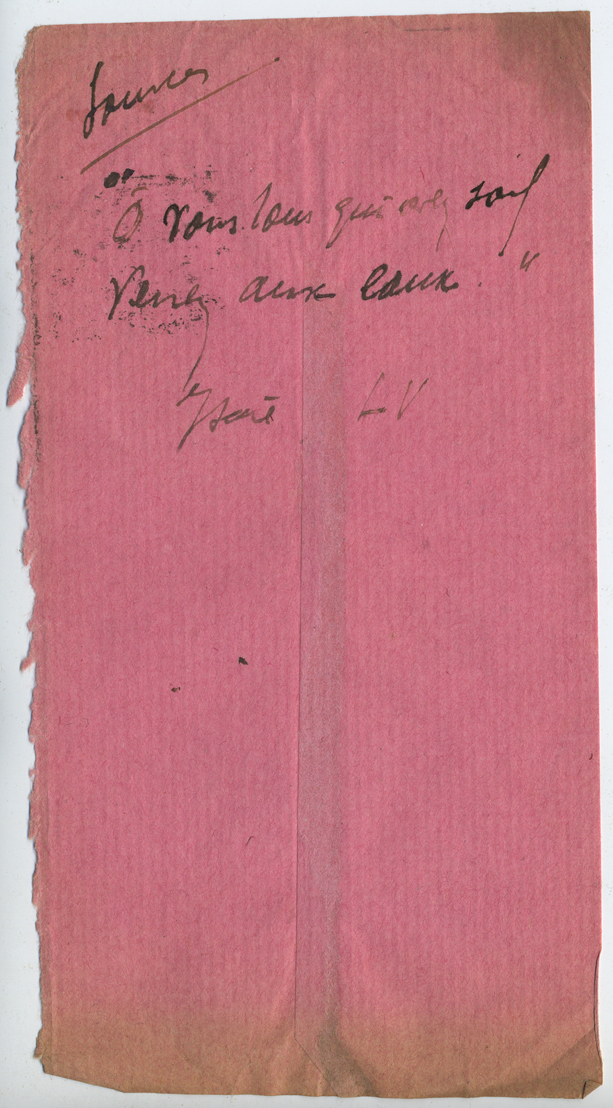 Sources
"Ô vous tous qui avez soif
Venez aux eaux. "
Isaïe LV